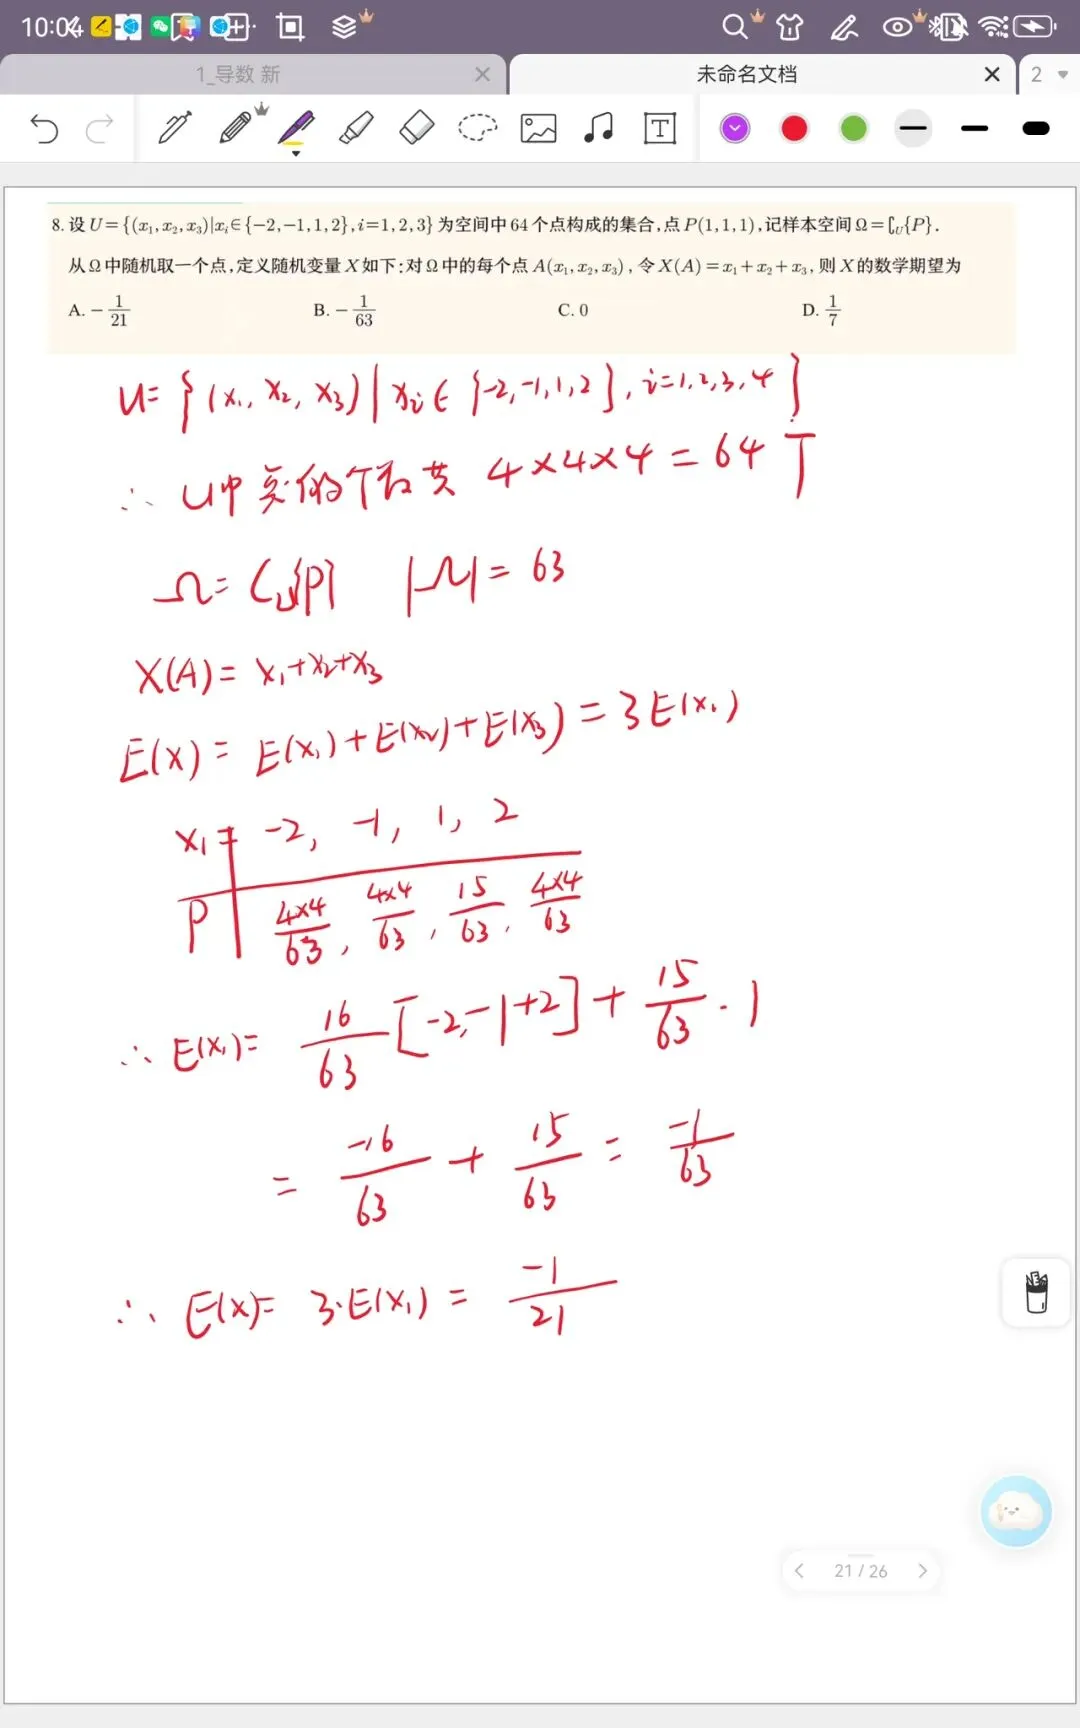 10:04
1_导数 新
未命名文档
2
8.设U={(x₁,x₂,x₃)|xᵢ∈{-2,-1,1,2},i=1,2,3}为空间中64个点构成的集合,点P(1,1,1),记样本空间Ω=∁ᵤ{P}.
从Ω中随机取一个点,定义随机变量X如下:对Ω中的每个点A(x₁,x₂,x₃),令X(A)=x₁+x₂+x₃,则X的数学期望为
A. -1/21 B. -1/63 C. 0 D. 1/7
U={(x₁, x₂, x₃)|xᵢ∈{-2,-1,1,2}, i=1,2,3,4}
∴ U中点的个数共 4×4×4=64个
Ω=∁ᵤ{P} |Ω|=63
X(A)=x₁+x₂+x₃
E(X)=E(x₁)+E(x₂)+E(x₃)=3E(x₁)
x₁= -2, -1, 1, 2
P 4×4/63, 4×4/63, 15/63, 4×4/63
∴E(x₁)= 16/63[-2,-1+2]+15/63·1
= -16/63 + 15/63 = -1/63
∴ E(X)= 3·E(x₁) = -1/21
21 / 26